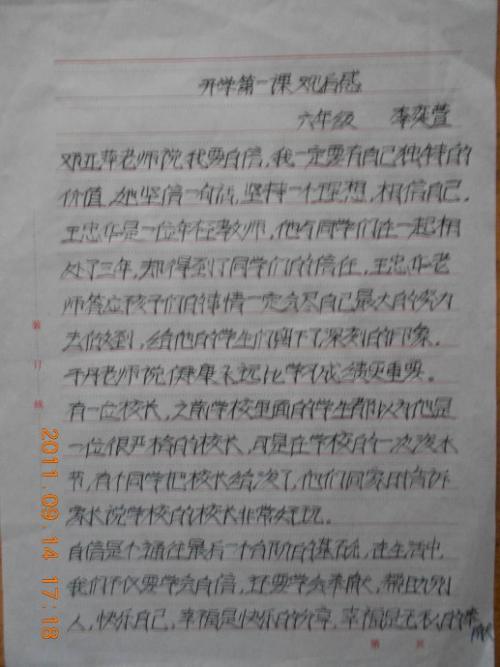 开学第一课观后感
六年级 李奕萱
邓亚萍老师说我要自信,我一定要有自己独特的
价值,她坚信一句话,坚持一个理想,相信自己。
王忠华是一位年轻教师,他与同学们在一起相
处了三年,却得到了同学们的信任,王忠华老
师答应孩子们的事情一定会尽自己最大的努力
去做到,给他的学生们留下了深刻的印象。
于丹老师说健康永远比学习成绩更重要。
有一位校长,之前学校里面的学生都以为他是
一位很严格的校长,可是在学校的一次泼水
节,有个同学把校长给泼了,他们回家后告诉
家长说学校的校长非常好玩。
自信是个通往最后一个台阶的基石,在生活中
我们不仅要学会自信,还要学会奉献,帮助别
人,快乐自己,幸福是快乐的分享,幸福是无私的奉
献
装
订
线
2011.09.14 17:18
第 页